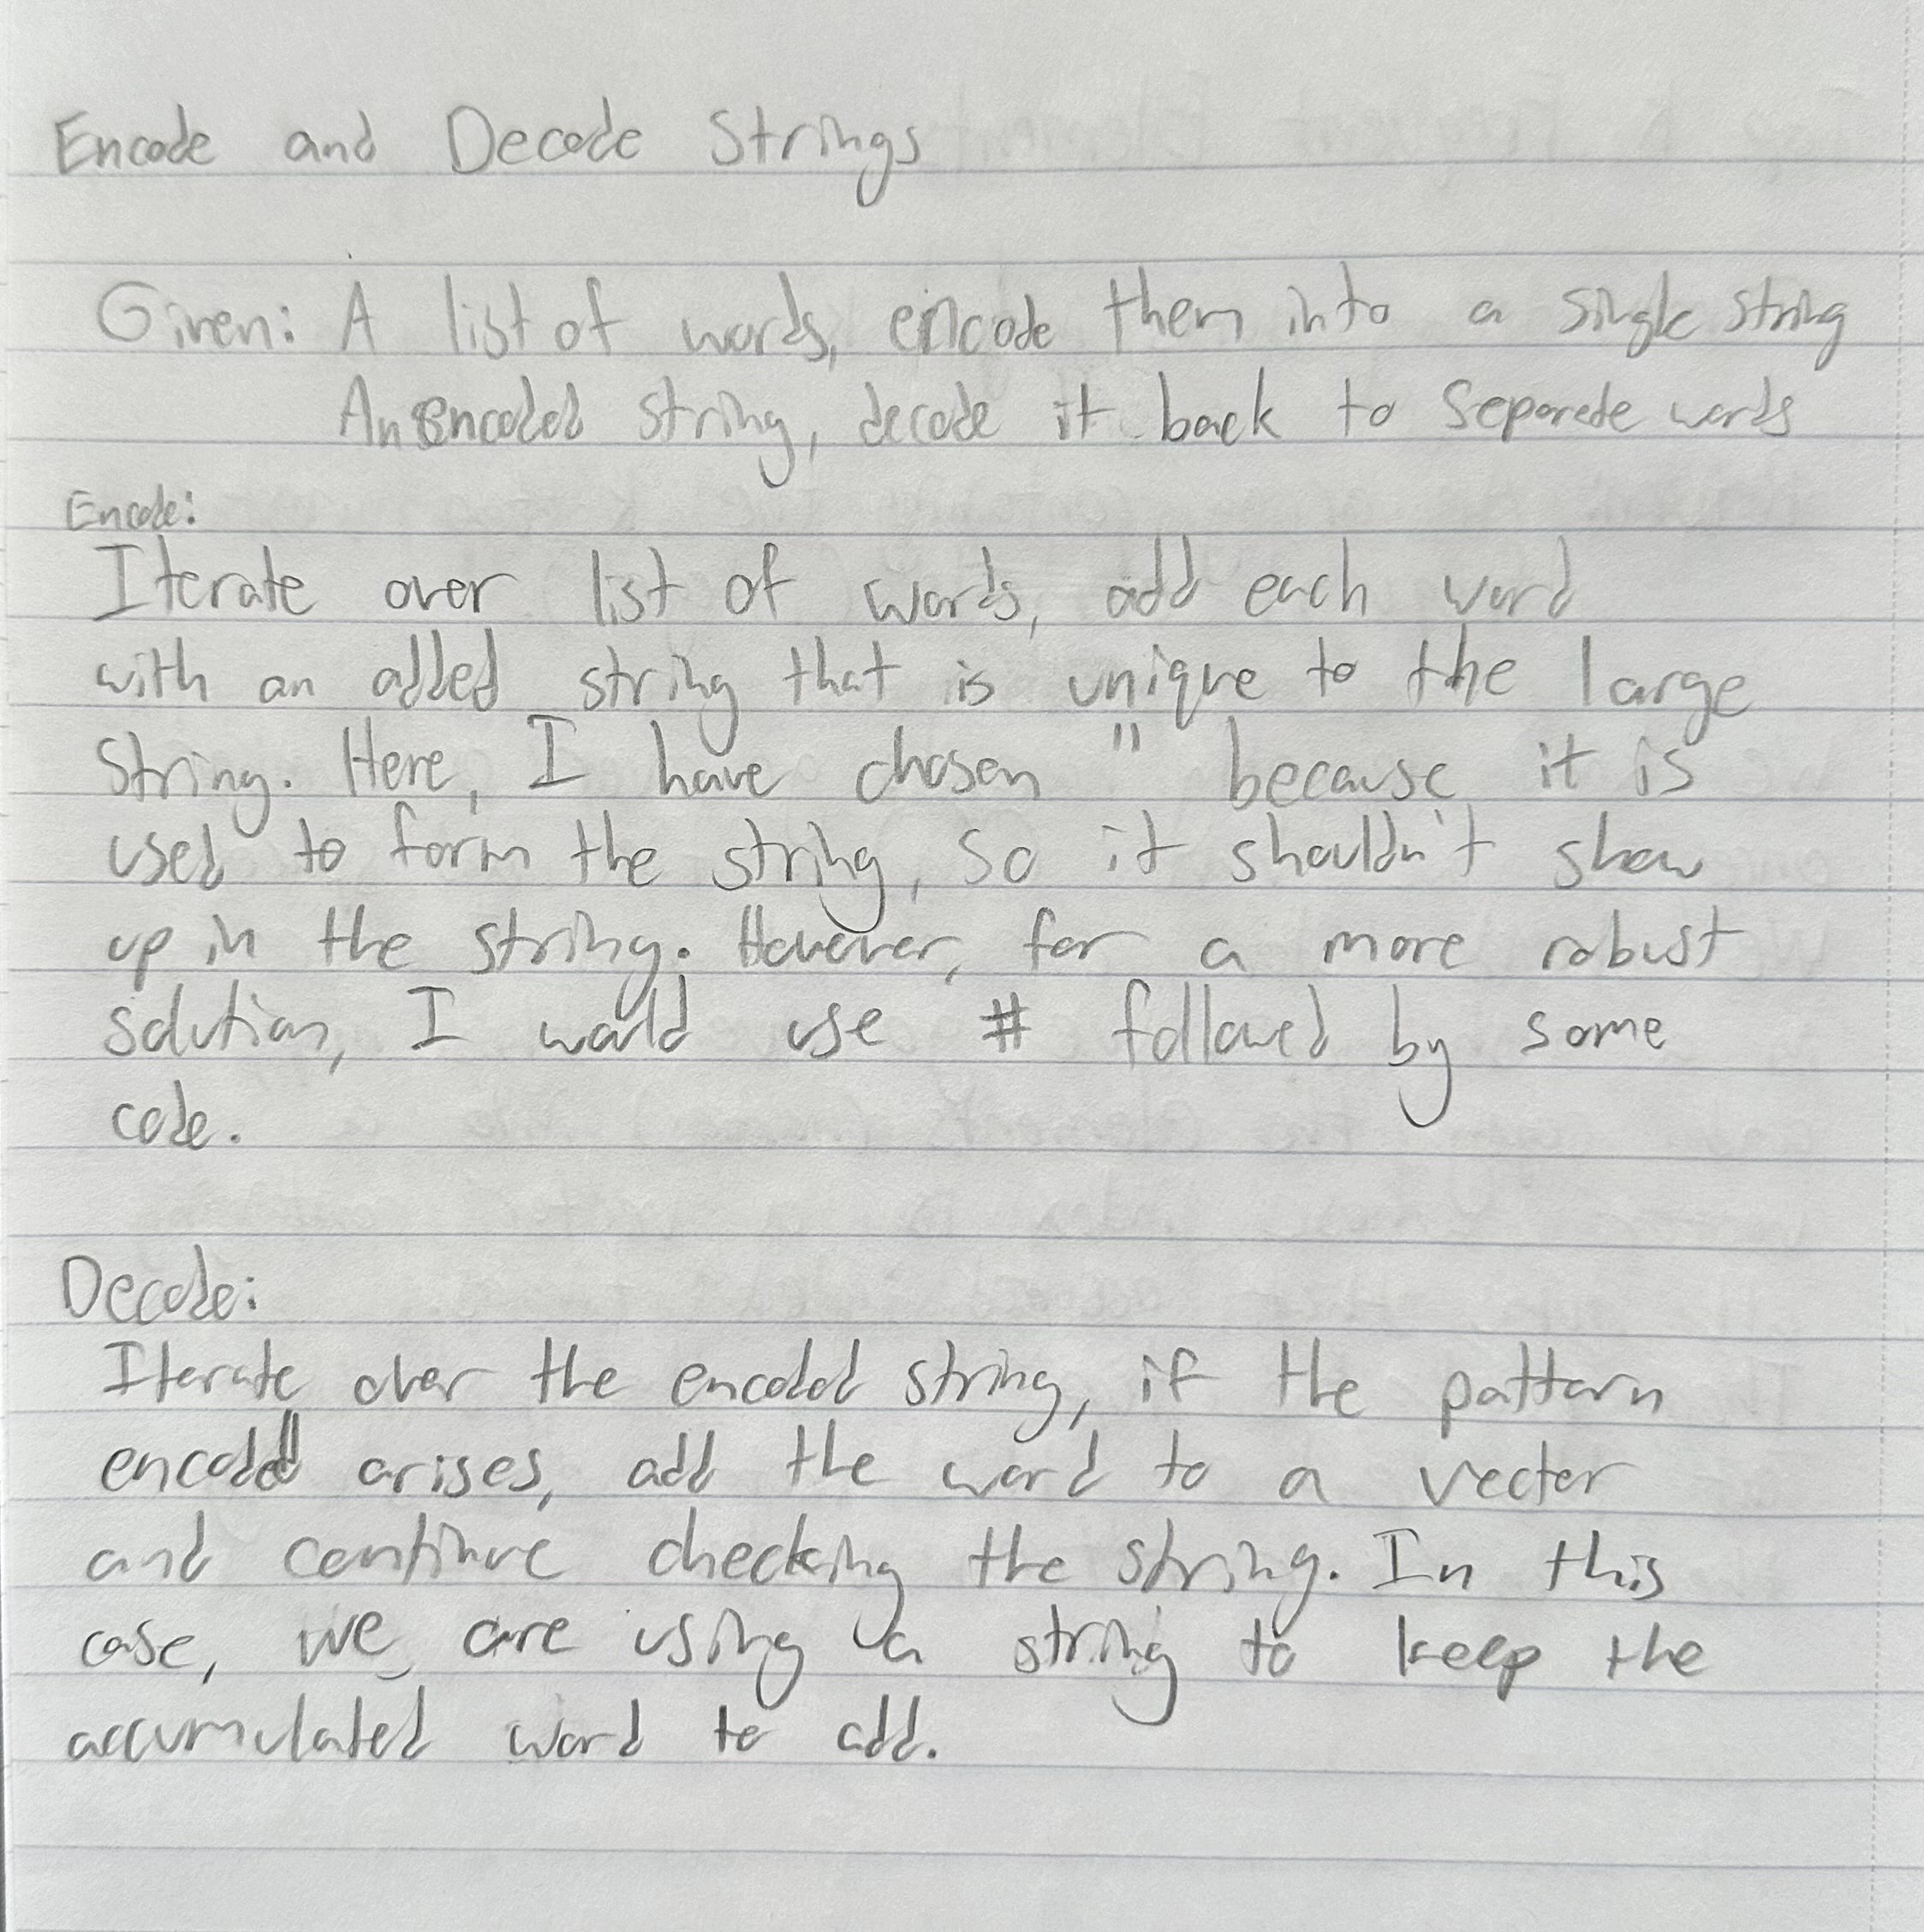 Encode and Decode Strings
Given: A list of words, encode them into a single string
An encoded string, decode it back to separate words
Encode:
Iterate over list of words, add each word
with an added string that is unique to the large
string. Here, I have chosen " because it is
used to form the string, so it shouldn't show
up in the string. However, for a more robust
solution, I would use # followed by some
code.
Decode:
Iterate over the encoded string, if the pattern
encoded arises, add the word to a vector
and continue checking the string. In this
case, we are using a string to keep the
accumulated word to add.